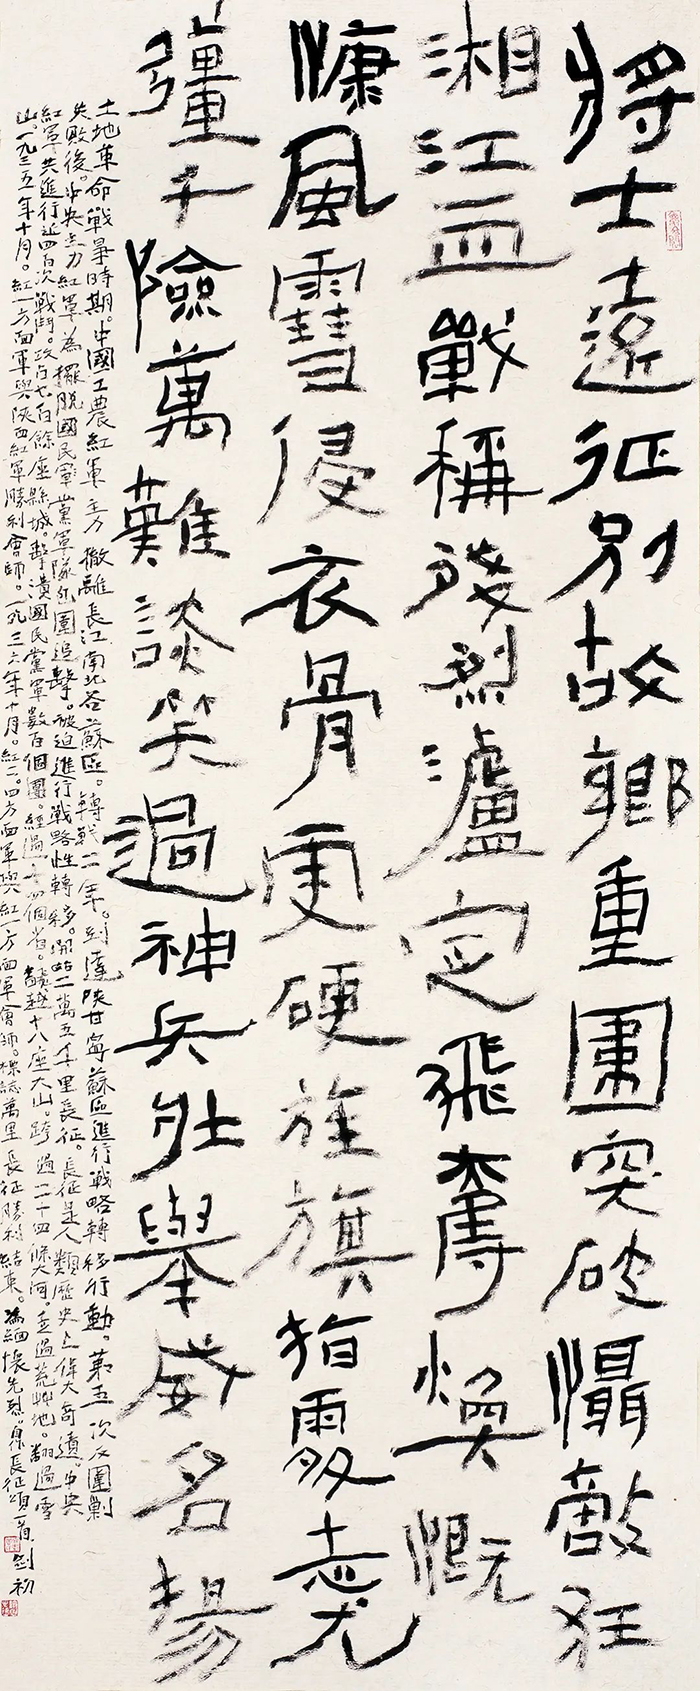 將士遠征別故鄉重圍突破懾敵狂
湘江血戰稱殘烈瀘定飛奪煥慨
慷風雪侵衣骨更硬旌旗指處志尤
彊千險萬難談笑過神兵壯舉威名揚
土地革命戰爭時期。中國工農紅軍主力撤離長江南北各蘇區。轉戰二年。到達陝甘寧蘇區進行戰略轉移行動。第五次反圍剿
失敗後。中央主力紅軍為擺脫國民黨軍隊圍追擊。被迫進行戰略性轉移。開始二萬五千里長征。長征是人類歷史上偉大奇遺。中央
紅軍共進行近四百次戰鬥。攻占七百餘座縣城。擊潰國民黨軍數百個團。經過十四個省。翻越十八座大山。跨過二十四條大河。走過荒艸地。翻過雪
山。一九三五年十月。紅一方面軍與陝西紅軍勝利會師。一九三六年十月。紅二。四方面軍與紅一方面軍會師。標誌萬里長征勝利結束。為緬懷先烈長征頌一首。劍初